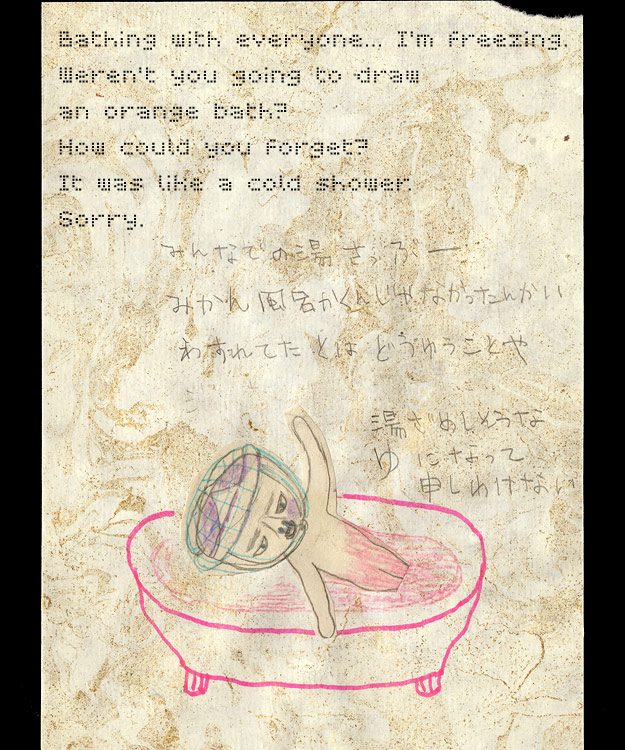 Bathing with everyone... I'm freezing.
Weren't you going to draw
an orange bath?
How could you forget?
It was like a cold shower.
Sorry.
みんなでの湯 さぶぶー
みかん風呂かくんじゃなかったんかい
わすれてたとはどうゆうことや
湯ざめしそうな
ゆになって
申しわけない